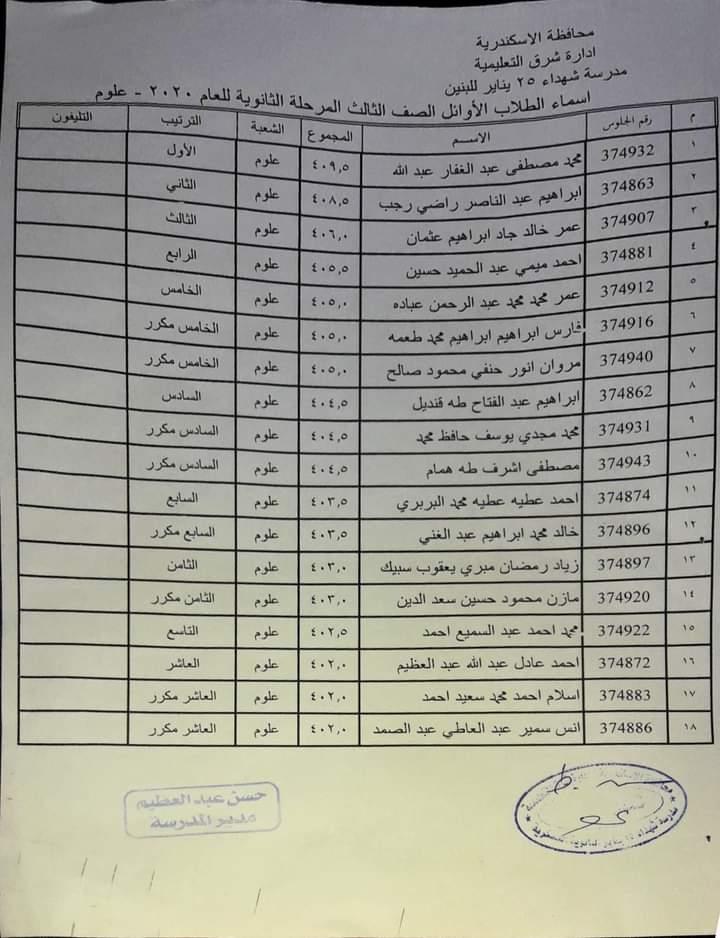 محافظة الاسكندرية
ادارة شرق التعليمية
مدرسة شهداء ٢٥ يناير للبنين
اسماء الطلاب الأوائل الصف الثالث المرحلة الثانوية للعام ٢٠٢٠ - علوم
م رقم الجلوس الاسم المجموع الشعبة الترتيب التليفون
١ 374932 محمد مصطفى عبد الغفار عبد الله ٤٠٩,٥ علوم الأول
٢ 374863 ابراهيم عبد الناصر راضي رجب ٤٠٨,٥ علوم الثاني
٣ 374907 عمر خالد جاد ابراهيم عثمان ٤٠٦,٠ علوم الثالث
٤ 374881 احمد ميمي عبد الحميد حسين ٤٠٥,٥ علوم الرابع
٥ 374912 عمر محمد محمد عبد الرحمن عباده ٤٠٥,٠ علوم الخامس
٦ 374916 فارس ابراهيم ابراهيم محمد طعمه ٤٠٥,٠ علوم الخامس مكرر
٧ 374940 مروان انور حنفي محمود صالح ٤٠٥,٠ علوم الخامس مكرر
٨ 374862 ابراهيم عبد الفتاح طه قنديل ٤٠٤,٥ علوم السادس
٩ 374931 محمد مجدي يوسف حافظ محمد ٤٠٤,٥ علوم السادس مكرر
١٠ 374943 مصطفى اشرف طه همام ٤٠٤,٥ علوم السادس مكرر
١١ 374874 احمد عطيه عطيه محمد البربري ٤٠٣,٥ علوم السابع
١٢ 374896 خالد محمد ابراهيم عبد الغني ٤٠٣,٥ علوم السابع مكرر
١٣ 374897 زياد رمضان مبري يعقوب سبيك ٤٠٣,٠ علوم الثامن
١٤ 374920 مازن محمود حسين سعد الدين ٤٠٣,٠ علوم الثامن مكرر
١٥ 374922 محمد احمد عبد السميع احمد ٤٠٢,٥ علوم التاسع
١٦ 374872 احمد عادل عبد الله عبد العظيم ٤٠٢,٠ علوم العاشر
١٧ 374883 اسلام احمد محمد سعيد احمد ٤٠٢,٠ علوم العاشر مكرر
١٨ 374886 انس سمير عبد العاطي عبد الصمد ٤٠٢,٠ علوم العاشر مكرر
حسن عبد العظيم
مدير المدرسة